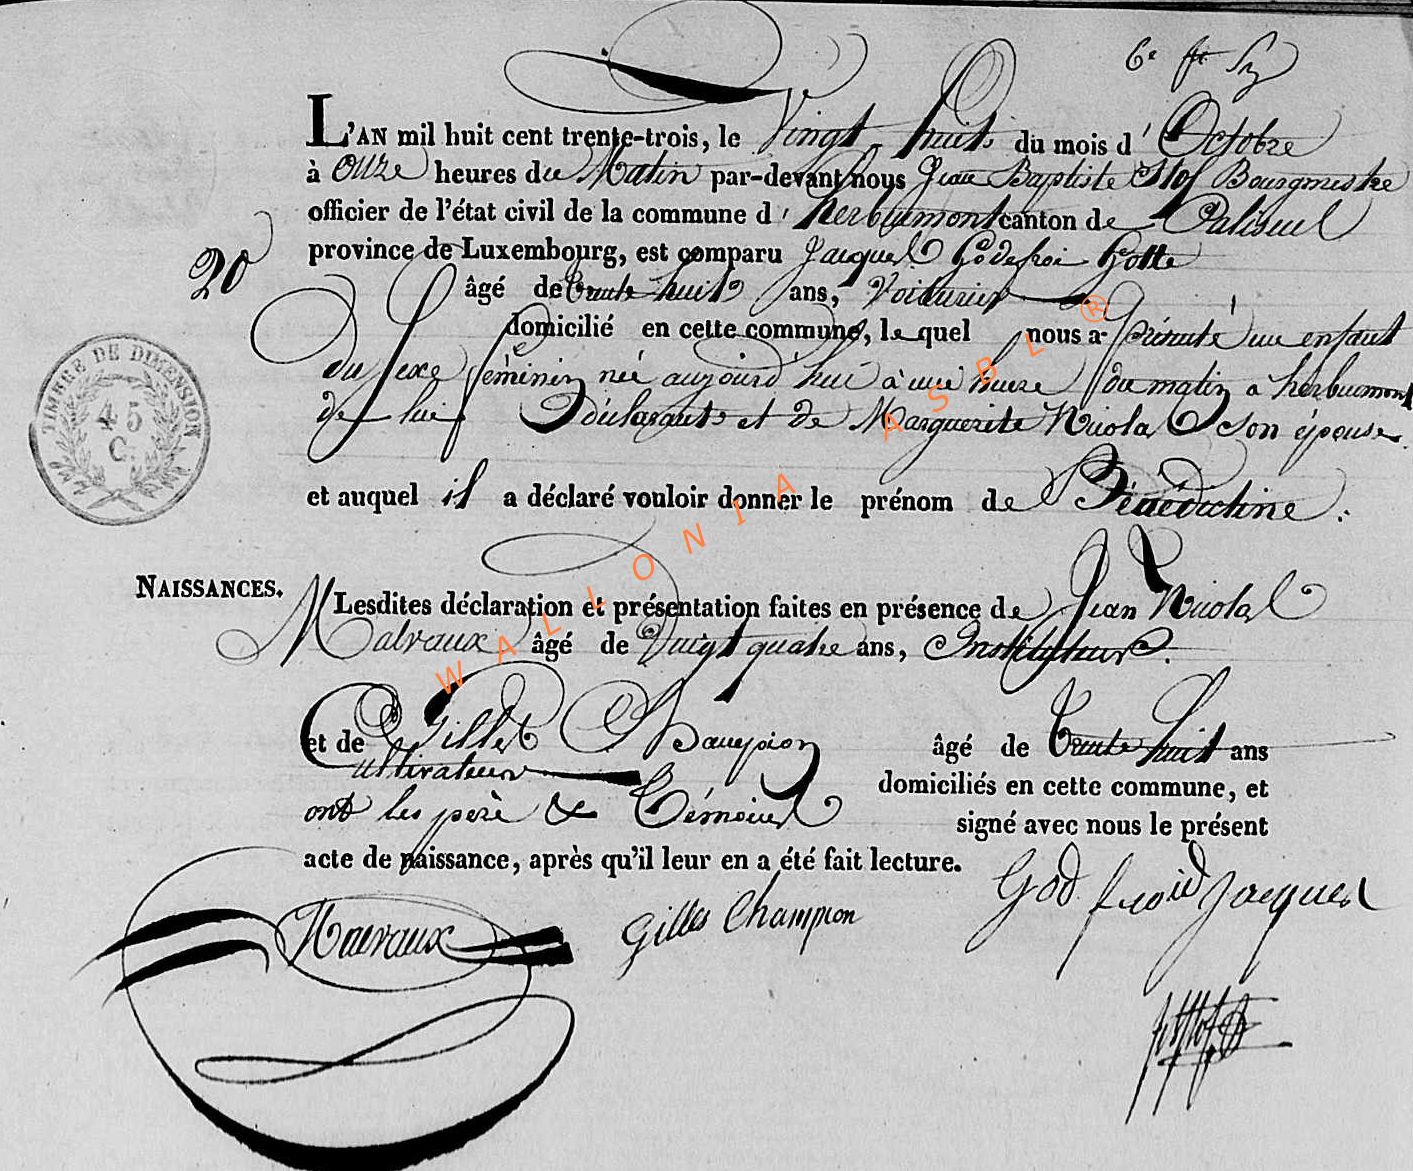 6e
L'AN mil huit cent trente-trois, le Vingt huit du mois d' Octobre
à onze heures du Matin par-devant nous Jean Baptiste Stof Bourgmestre
officier de l'état civil de la commune d' herbuemont canton de Paliseul
province de Luxembourg, est comparu Jacques Godefroi Gotte
20
âgé de trente huit ans, Voiturier
domicilié en cette commune, lequel nous a présenté un enfant
du sexe féminin née aujourd'hui à une heure du matin a herbuemont
de lui Déclarant et de Marguerite Nicolas son épouse
TIMBRE DE DIMENSION
45
C.
et auquel il a déclaré vouloir donner le prénom de Bénédictine.
NAISSANCES.
Lesdites déclaration et présentation faites en présence de Jean Nicolas
Malvaux âgé de Vingt quatre ans, Instituteur.
et de Gilles Champion âgé de trente huit ans
Cultivateur domiciliés en cette commune, et
ont les père & témoins signé avec nous le présent
acte de naissance, après qu'il leur en a été fait lecture.
Malvaux Gilles Champion Godfroid Jacques
WALLONIA ASBL ®